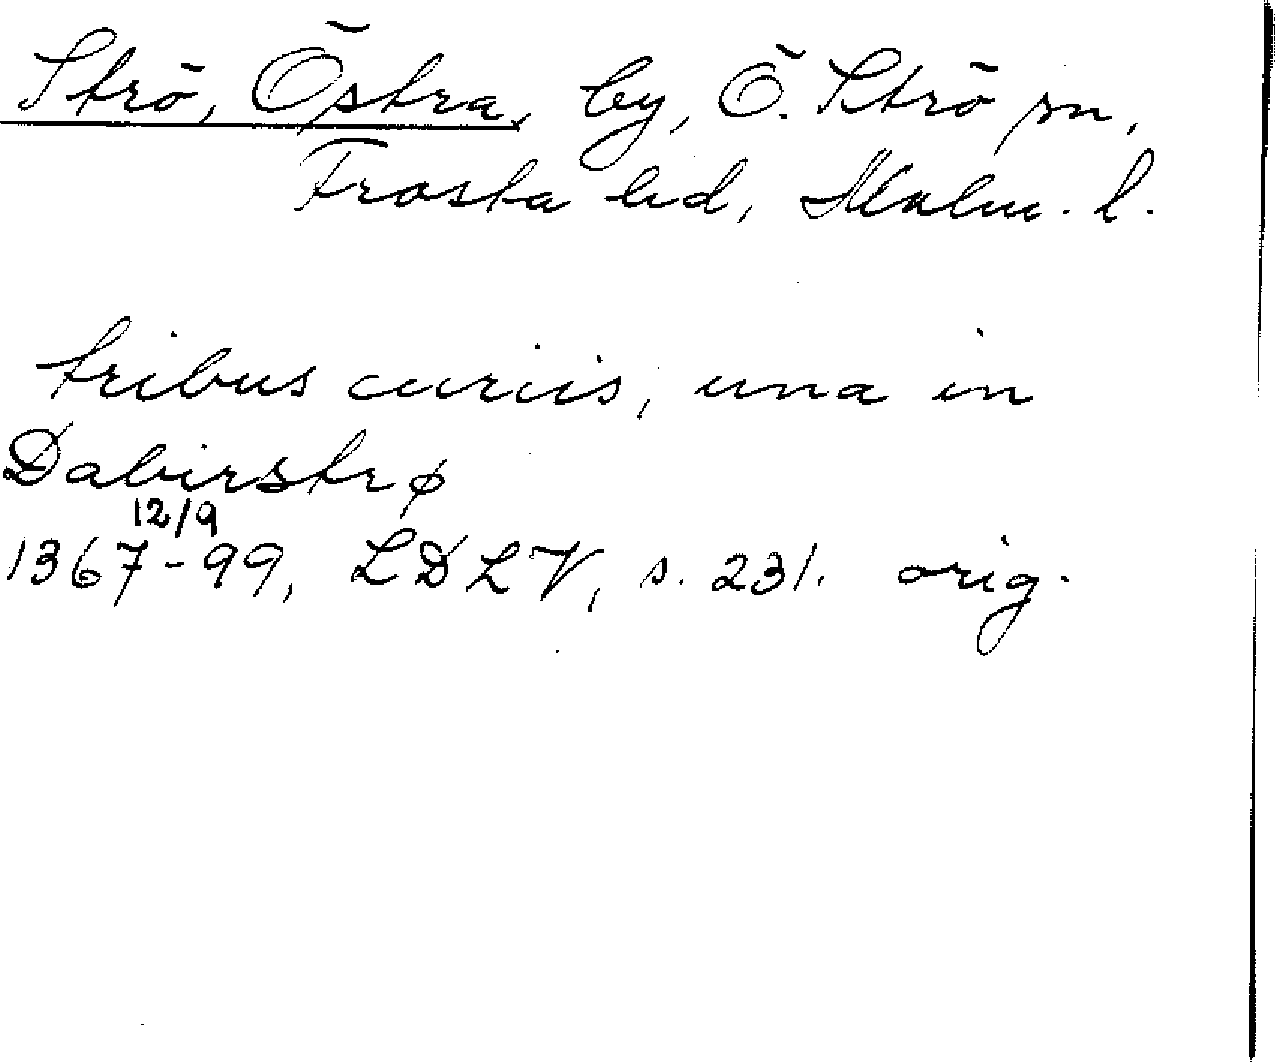 Strö, Östra, by, Ö. Strö sn,
Frosta hd, Malm. l.
tribus curiis, una in
Dabirstrø
12/9
1367-99, LDLV, s. 231. orig.